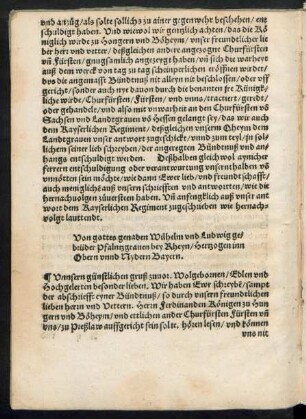 vnd anzüg/als solte sollichs zu ainer gegenwehr beschehen/ ent
schuldigt haben. Vnd wiewol wir gentzlich achten/das die Kö
niglich wirde zu Hongern vnd Böheym/ vnser freundtlicher lie
ber herr vnd vetter/ deßgleichen andere angezogne Churfürsten
vñ Fürsten/ gnugsamlich angezeygt haben/ vñ sich die warheyt
auß dem werck von tag zu tag scheinperlichen eröffnen wirdet/
das sölche angeregte Bündnuß nit alleyn nit beschlossen/oder vff
gericht/sonder auch nye dauon durch die benanten jre Künigk/
liche wirde/ Churfürsten/ Fürsten/ vnd vnns/tractiert/geredt/
oder gehandelt/vnd also mit vnwarheit an den Churfürsten vō
Sachsen vnd Landtgrauen vō hessen gelangt sey/das wir auch
dem Kayserlichen Regiment/ deßgleichen vnserm Oheym dem
Landtgrauen vnser antwort zugeschickt/vnnd zum teyl/in söl
lichem seiner lieb schreyben/ der angeregten Bündtnuß vnd an/
hangs entschuldigt werden. Deßhalben gleich wol aynicher
ferrern entschuldigung oder verantwurtung vnsernthalben vō
vnnöten sein möchte/vnd dann Ewer lieb/vnd freundtschafft/
auch menigklich auß vnsern schriefften vnd antwortten/wie die
hernachuolgen züuersteen haben. Vñ anfengklich auß vnser ant
wort dem Kayserlichen Regiment zugeschrieben wie hernach/
volgt lauttendt.
Von gottes genaden Wilhelm vnd Ludwig ge/
brüder Pfaltzgrauen bey Rheyn/Hertzogen inn
Obern vnnd Nydern Bayern.
¶ Vnnsern günstlichen gruß zuuor. Wolgebornen/Edlen vnd
Hochgelerten besonder lieben. Wir haben Ewr schreybē/sampt
der abschriefft eyner Bündtnuß/ so durch vnsern freundtlichen
lieben herrn vnd Vettern. Herrn Ferdinanden Königen zu Hun
gern vnd Böheym/vnd etlichen ander Churfürsten Fürsten vñ
vns/zu Preßlaw auffgericht sein solte. hören lesen/vnd können
vns nit